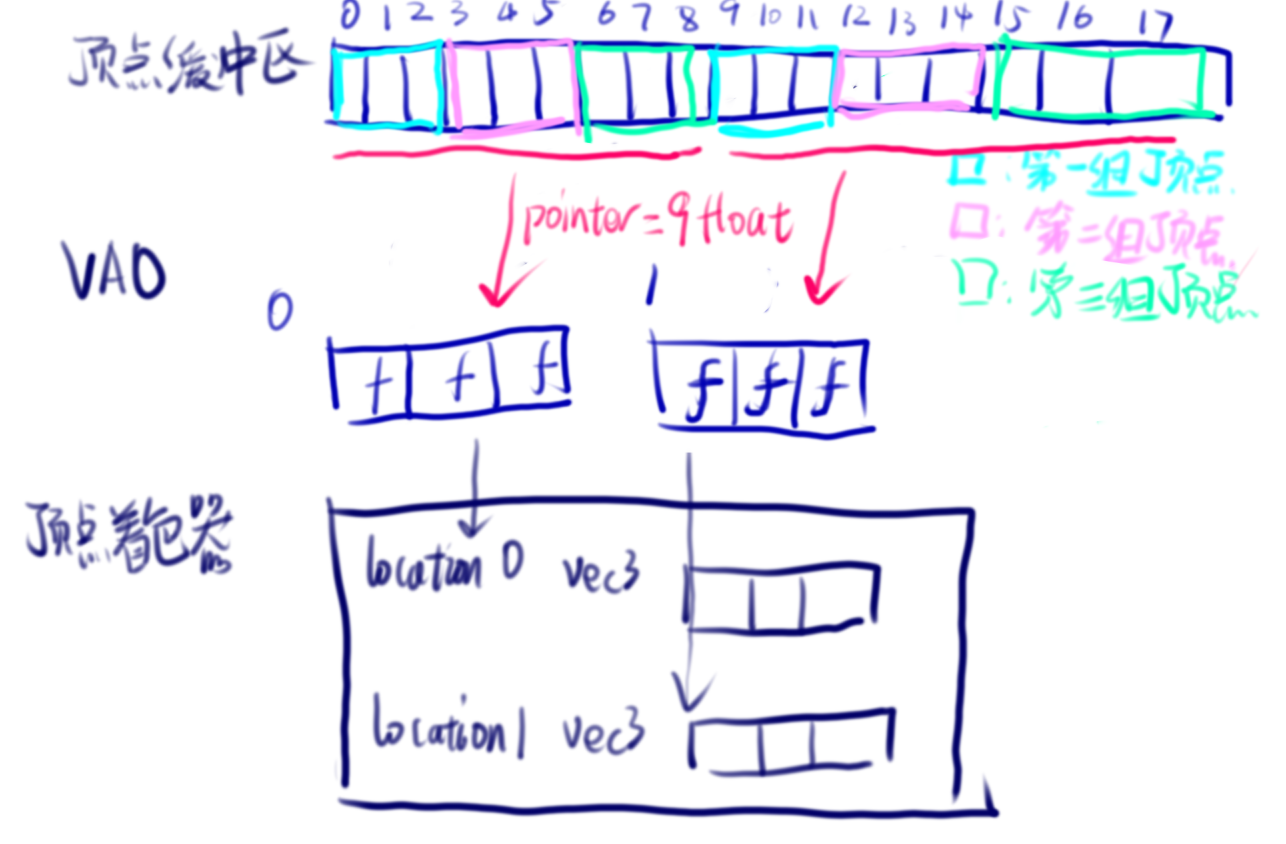 0 1 2 3 4 5 6 7 8 9 10 11 12 13 14 15 16 17
顶点缓冲区
□:第一组顶点
pointer=9 float
□:第二组顶点
VAO
□:第三组顶点
0 1
f f f f f f
顶点着色器
location 0 vec3
location 1 vec3